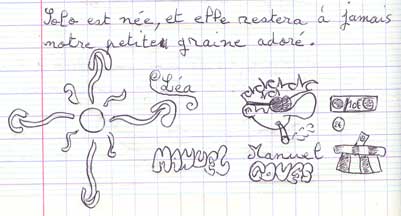 Lolo est née, et elle restera à jamais
notre petite graine adoré.
Léa
MANUEL
Manuel